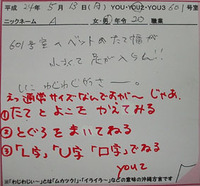 平成 24年 5月 13日(日) YOU-YOU2-YOU3 601号室
ニックネーム A 女・男 年令 20 職業
601号室のベットのたて幅が
小さくて足が入らん!!
しに わじわじぃさー。
え、通常サイズなんですが〜 じゃあ、
①たてとよこをかえてみる
②とぐろをまいてねる
③「L字」「U字」「ロ字」でねる
YOU2
※「わじわじぃ〜」とは「ムカツク!」・「イライラ〜」などの意味の沖縄方言です